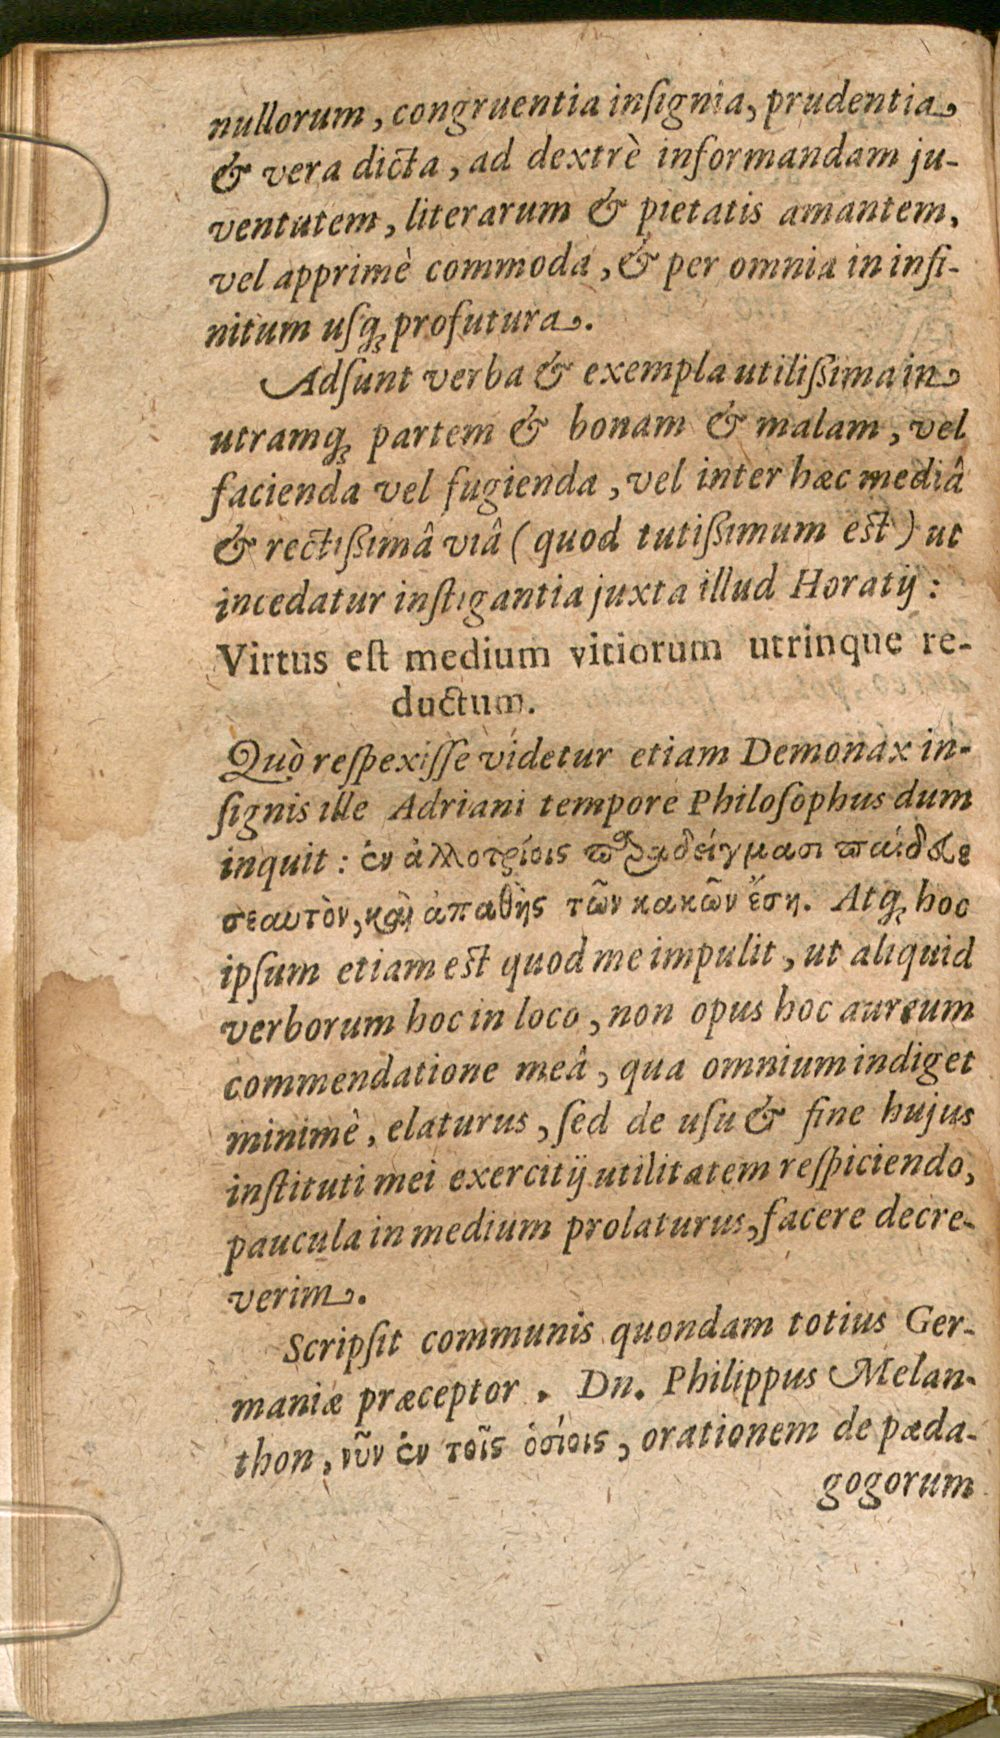 nullorum, congruentia inſignia, prudentia
& vera dicta, ad dextrè informandam ju-
ventutem, literarum & pietatis amantem,
vel apprimè commoda, & per omnia in infi-
nitum uſq́; profutura.
Adſunt verba & exempla utilißima in
utramq́; partem & bonam & malam, vel
facienda vel fugienda, vel inter hæc mediâ
& rectißimâ viâ (quod tutißimum est) ut
incedatur inſtigantia juxta illud Horatij:
Virtus eſt medium vitiorum utrinque re-
ductum.
Quò reſpexiſſe videtur etiam Demonax in-
ſignis ille Adriani tempore Philoſophus dum
inquit: ἐν ἀλλοτρίοις παραδείγμασι παίδευε
σεαυτὸν, καὶ ἀπαθὴς τῶν κακῶν ἔση. Atq́; hoc
ipſum etiam est quod me impulit, ut aliquid
verborum hoc in loco, non opus hoc aureum
commendatione meâ, qua omnium indiget
minimè, elaturus, ſed de uſu & fine hujus
inſtituti mei exercitij utilitatem reſpiciendo,
paucula in medium prolaturus, facere decre-
verim.
Scripſit communis quondam totius Ger-
maniæ præceptor. Dn. Philippus Melan-
thon, νῦν ἐν τοῖς ὁσίοις, orationem de pæda-
gogorum